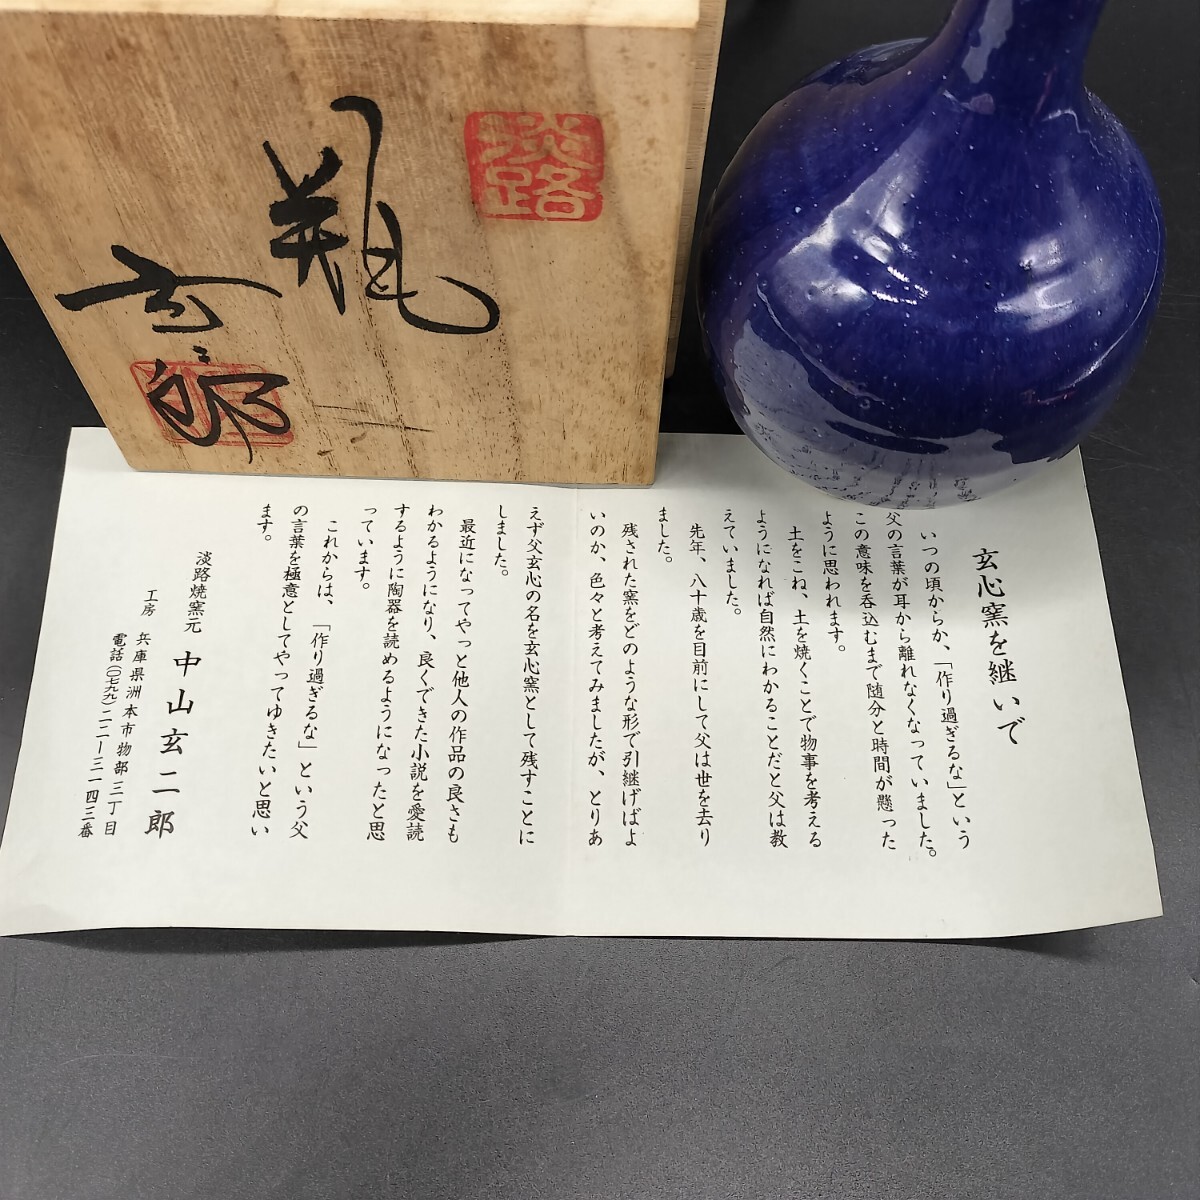 淡路
瓶
玄二郎
玄心窯を継いで
いつの頃からか、「作り過ぎるな」という
父の言葉が耳から離れなくなっていました。
この意味を呑込むまで随分と時間が懸った
ように思われます。
土をこね、土を焼くことで物事を考える
ようになれば自然にわかることだと父は教
えていました。
先年、八十歳を目前にして父は世を去り
ました。
残された窯をどのような形で引継げばよ
いのか、色々と考えてみましたが、とりあ
えず父玄心の名を玄心窯として残すことに
しました。
最近になってやっと他人の作品の良さも
わかるようになり、良くできた小説を愛読
するように陶器を読めるようになったと思
っています。
これからは、「作り過ぎるな」という父
の言葉を極意としてやってゆきたいと思い
ます。
淡路焼窯元 中山玄二郎
工房 兵庫県洲本市物部三丁目
電話(〇七九九)二二ー三一四三番